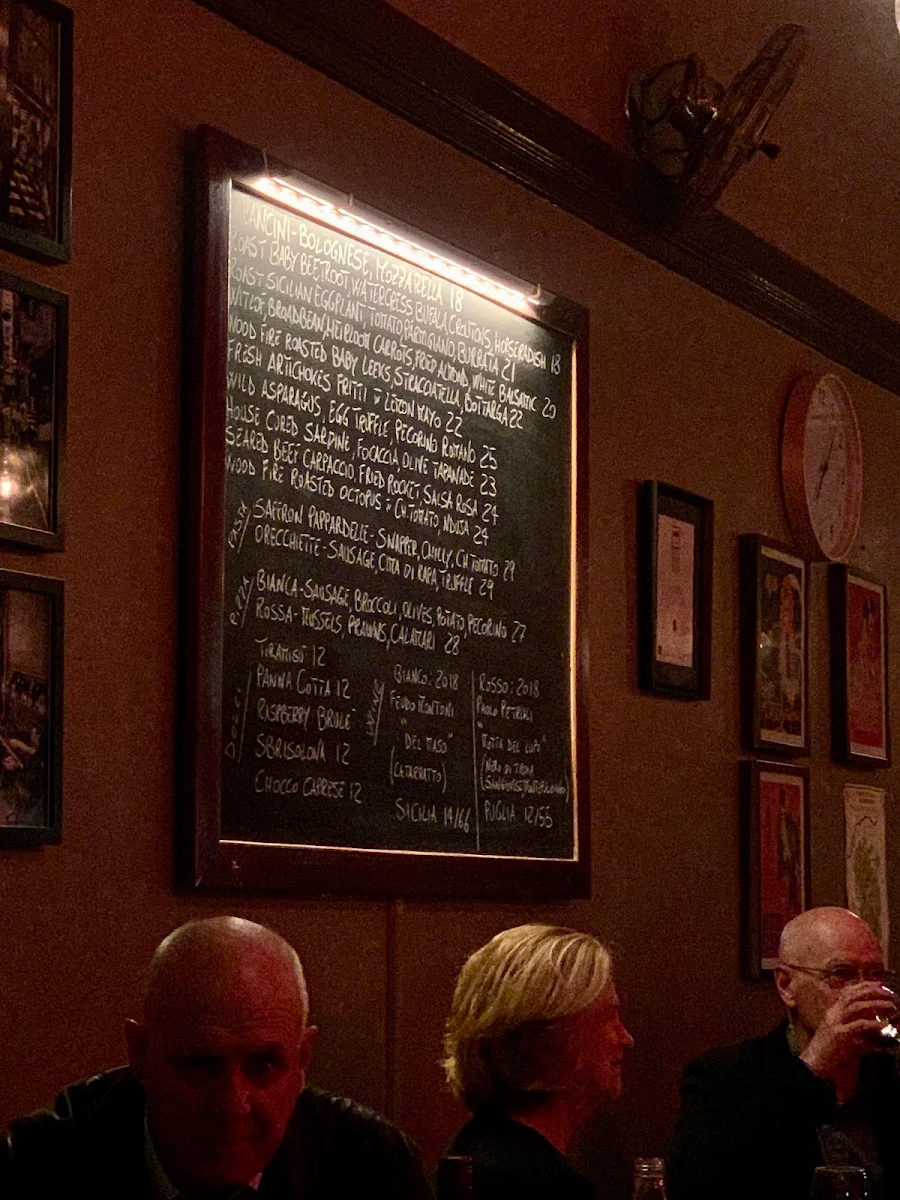 ANCINI-BOLOGNESE, MOZZARELLA 18
OAST BABY BEETROOT WATERCRESS BUFALA, CROUTONS, HORSERADISH 18
OAST SICILIAN EGGPLANT TOMATO, PARMIGIANO, BURRATA 21
WITLOF, BROADBEAN, HEIRLOOM CARROTS, FRIED ALMOND, WHITE BALSAMIC 20
WOOD FIRE ROASTED BABY LEEKS, STRACCIATELLA, BOTTARGA 22
FRESH ARTICHOKES FRITTI + LEMON MAYO 22
WILD ASPARAGUS, EGG TRUFFLE, PECORINO ROMANO 25
HOUSE CURED SARDINE, FOCACCIA, OLIVE TAPANADE 23
SEARED BEEF CARPACCIO, FRIED ROCKET, SALSA ROSA 24
WOOD FIRE ROASTED OCTOPUS + CH.TOMATO, NDUJA 24
PASTA
SAFFRON PAPPARDELLE - SNAPPER, CHILLY, CH.TOMATO 29
ORECCHIETTE - SAUSAGE, CIMA DI RAPA, TRUFFLE 29
PIZZA
BIANCA - SAUSAGE, BROCCOLI, OLIVES, POTATO, PECORINO 27
ROSSA - MUSSELS, PRAWNS, CALAMARI 28
DOLCI
TIRAMISÚ 12
PANNA COTTA 12
RASPBERRY BRULE'
SBRISOLONA 12
CHOCCO CAPRESE 12
BIANCO: 2018
FEUDO MONTONI
"DEL MASO"
(CATARRATTO)
SICILIA 14/66
ROSSO: 2018
PAOLO PETRILLI
NERO DI TROIA
PUGLIA 12/55